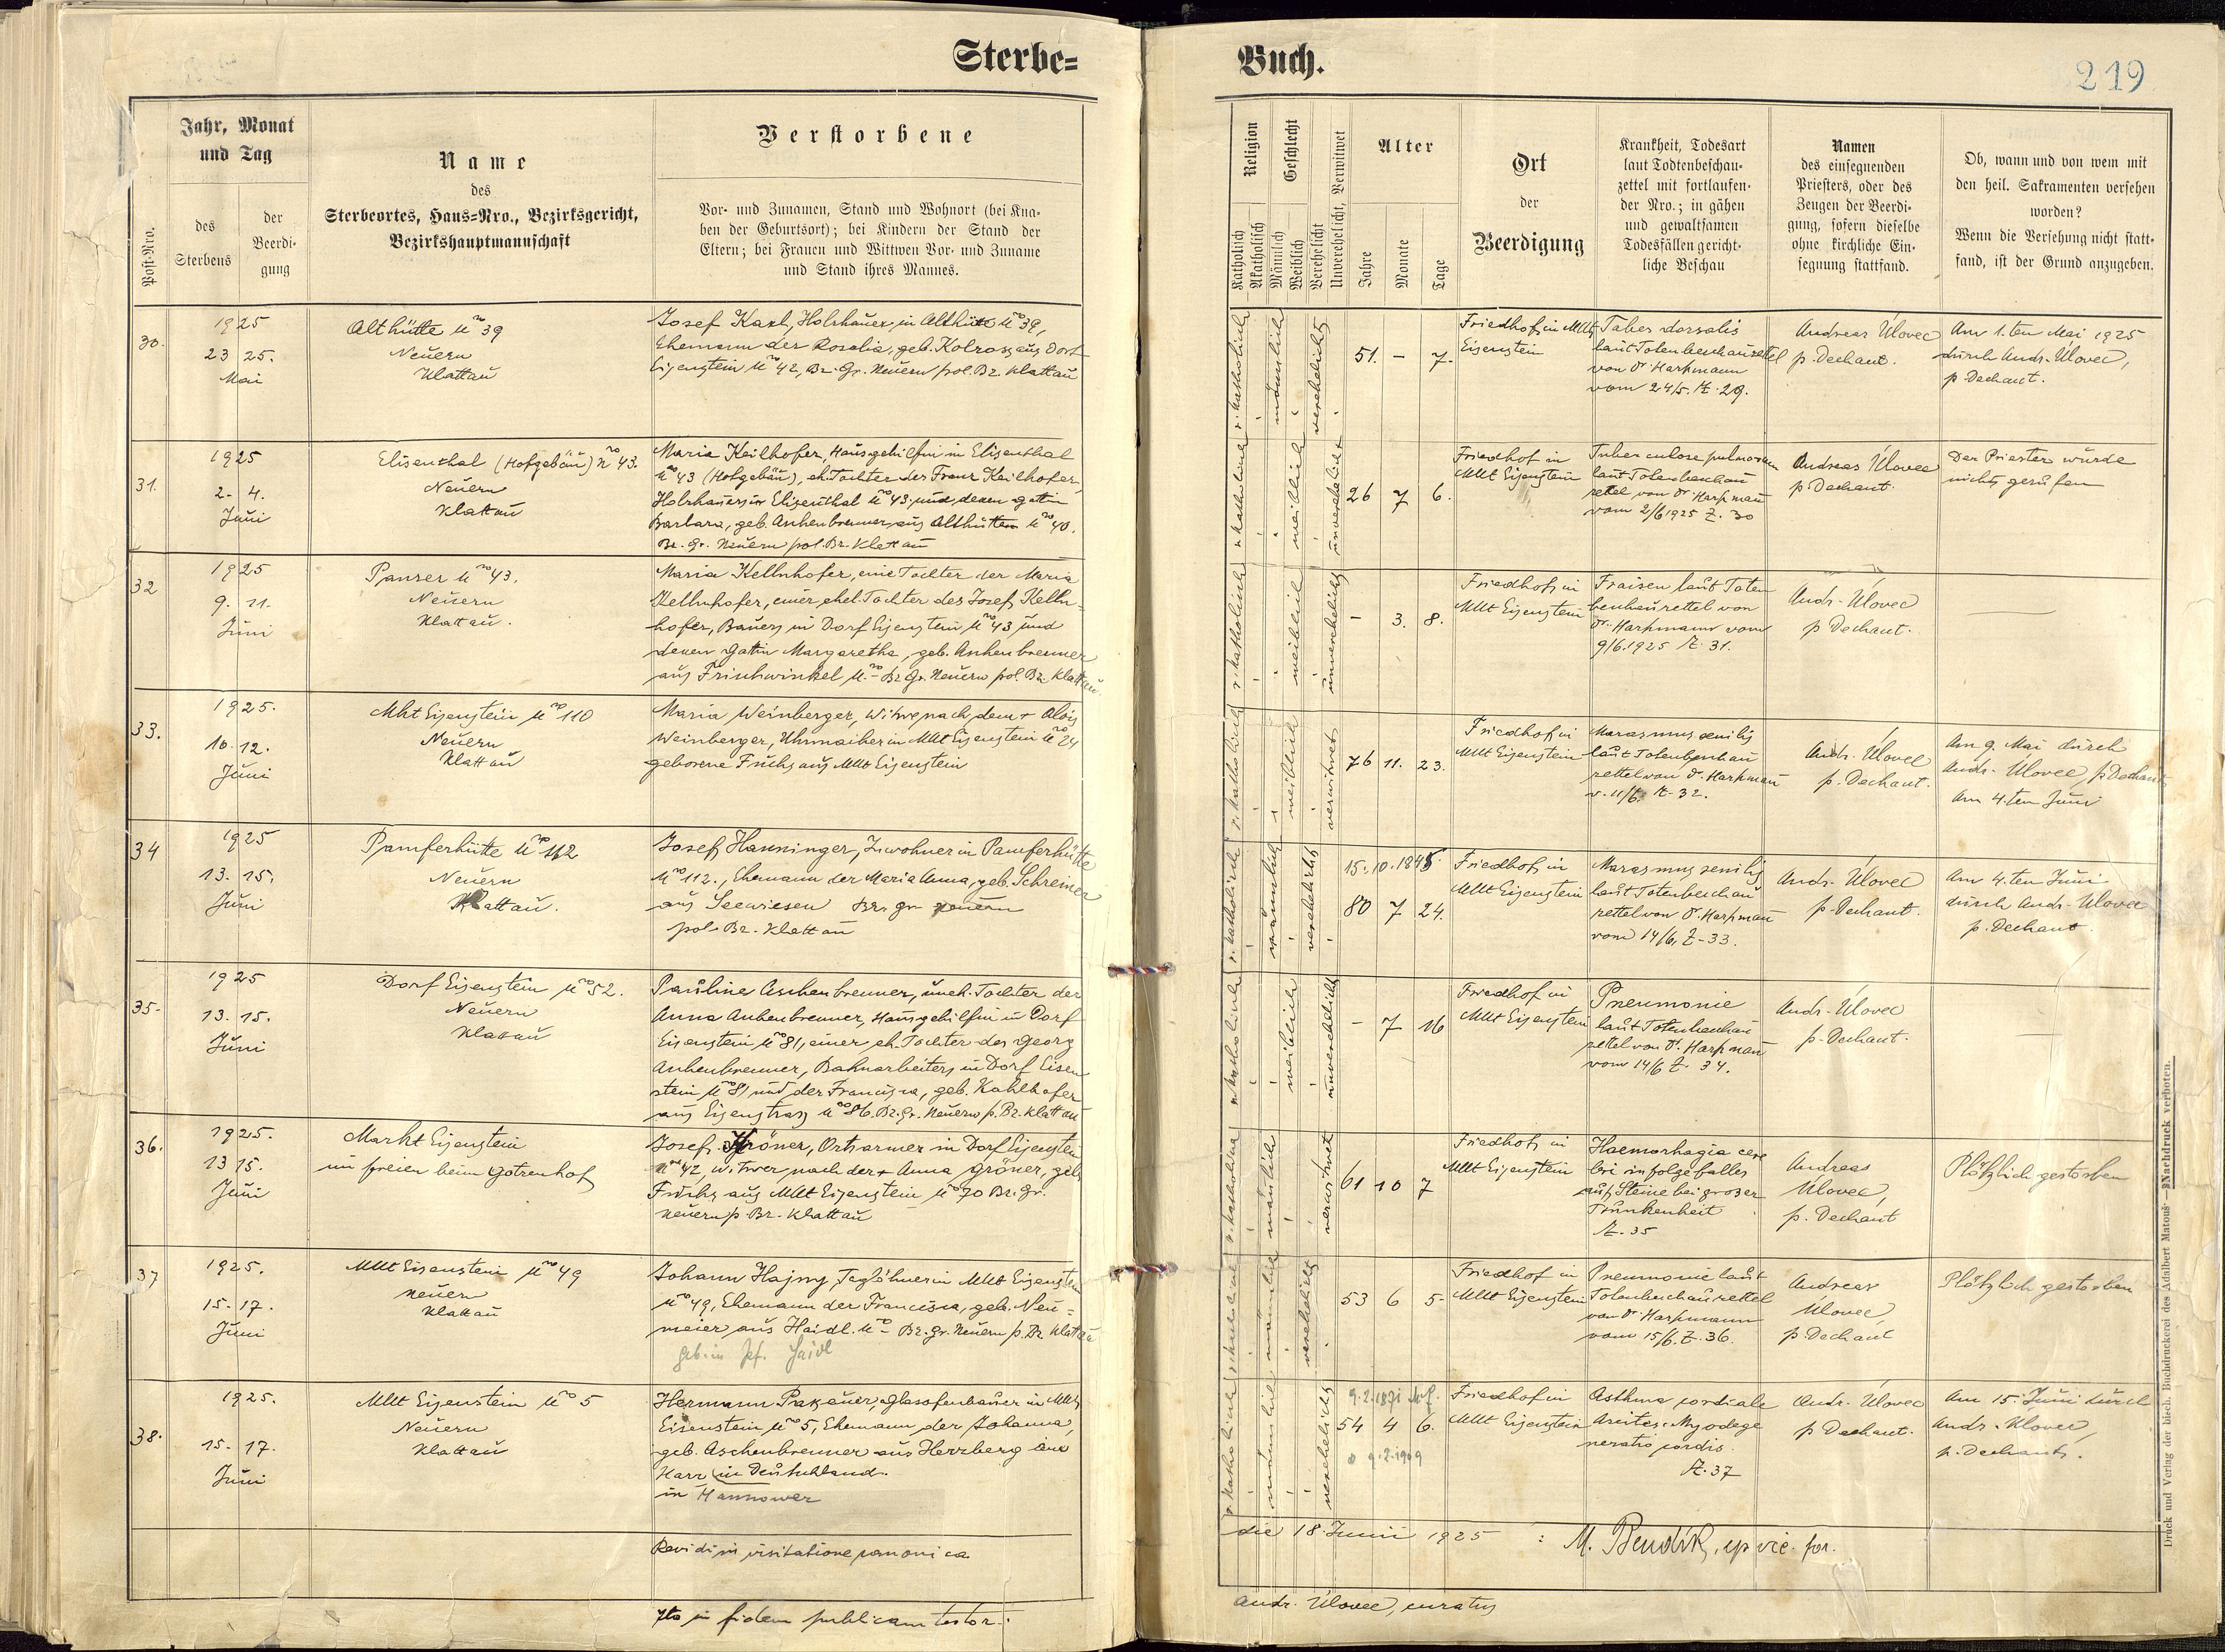 Sterbe=
Buch.
219
Post-Nro.
Jahr, Monat
und Tag
des
Sterbens
der
Beerdi-
gung
Name
des
Sterbeortes, Haus=Nro., Bezirksgericht,
Bezirkshauptmannschaft
Verstorbene
Vor- und Zunamen, Stand und Wohnort (bei Kna-
ben der Geburtsort); bei Kindern der Stand der
Eltern; bei Frauen und Wittwen Vor- und Zuname
und Stand ihres Mannes.
Religion
Katholisch
Akatholisch
Geschlecht
Männlich
Weiblich
Verehelicht
Unverehelicht, Verwitwet
Alter
Jahre
Monate
Tage
Ort
der
Beerdigung
Krankheit, Todesart
laut Todtenbeschau-
zettel mit fortlaufen-
der Nro.; in gähen
und gewaltsamen
Todesfällen gericht-
liche Beschau
Namen
des einsegnenden
Priesters, oder des
Zeugen der Beerdi-
gung, sofern dieselbe
ohne kirchliche Ein-
segnung stattfand.
Ob, wann und von wem mit
den heil. Sakramenten versehen
worden?
Wenn die Versehung nicht statt-
fand, ist der Grund anzugeben.
30.
1925
23 25.
Mai
Althütte No 39
Neuern
Klattau
Josef Karl, Holzhauer in Althütte No 39,
Ehemann der Rosalia, geb. Kolross aus Dorf
Eisenstein No 42, Bz. Gr. Neuern pol. Bz. Klattau
r. katholisch
männlich
verehelicht
51. - 7.
Friedhof in Mkt
Eisenstein
Tabes dorsalis
laut Totenbeschauzettel
von Dr Harpmann
vom 24/5. Z. 29.
Andreas Úlovec
p. Dechant.
Am 1.ten Mai 1925
durch Andr. Úlovec,
p. Dechant.
31.
1925
2. 4.
Juni
Elisenthal (Hofgebäu) No 43.
Neuern
Klattau
Maria Keilhofer, Hausgehilfin in Elisenthal
No 43 (Hofgebäu), eh. Tochter des Franz Keilhofer,
Holzhauers in Elisenthal No 43. und dessen Gattin
Barbara, geb. Aschenbrenner aus Althütten No 40.
Bz. Gr. Neuern pol. Bz. Klattau
r. katholisch
weiblich
unverehelicht
26 7 6.
Friedhof in
Mkt Eisenstein
Tuberculose pulmonum
laut Totenbeschau
zettel von Dr Harpmann
vom 2/6 1925 Z. 30
Andreas Úlovec
p. Dechant.
Der Priester wurde
nicht gerufen
32
1925
9. 11.
Juni
Panzer No 43.
Neuern
Klattau.
Maria Kellnhofer, eine Tochter der Maria
Kellnhofer, einer ehel. Tochter des Josef Kelln-
hofer, Bauers in Dorf Eisenstein No 43 und
dessen Gattin Margaretha, geb. Aschenbrenner
aus Frischwinkel No - Bz. Gr. Neuern pol. Bz. Klattau
r. katholisch
weiblich
unverehelicht
- 3. 8.
Friedhof in
Mkt Eisenstein
Fraisen laut Toten
beschauzettel von
Dr. Harpmann vom
9/6. 1925 Z. 31.
Andr. Úlovec
p Dechant.
—
33.
1925.
10. 12.
Juni
Mkt Eisenstein No 110
Neuern
Klattau
Maria Weinberger, Witwe nach dem + Alois
Weinberger, Uhrmacher in Mkt Eisenstein No 24
geborene Fuchs aus Mkt Eisenstein
r. katholisch
weiblich
verwitwet
76 11. 23.
Friedhof in
Mkt Eisenstein
Marasmus senilis
laut Totenbeschau
zettel von Dr. Harpmann
v. 11/6. Z. 32.
Andr. Úlovec
p. Dechant.
Am 9. Mai durch
Andr. Úlovec, p. Dechant
Am 4.ten Juni
34
1925
13. 15.
Juni
Pamferhütte No 112
Neuern
Klattau.
Josef Hanninger, Inwohner in Pamferhütte
No 112., Ehemann der Maria Anna, geb. Schreiner
aus Seewiesen Bz. gr Neuern
pol. Bz. Klattau
r. katholisch
männlich
verehelicht
15. 10. 1845.
80 7 24.
Friedhof in
Mkt Eisenstein
Marasmus senilis
laut Totenbeschau
zettel von Dr. Harpmann
vom 14/6. Z. 33.
Andr. Úlovec
p. Dechant.
Am 4.ten Juni
durch Andr. Úlovec
p. Dechant.
35.
1925
13. 15.
Juni
Dorf Eisenstein No 52.
Neuern
Klattau
Pauline Aschenbrenner, uneh. Tochter der
Anna Aschenbrenner, Hausgehilfin in Dorf
Eisenstein No 81, einer eh. Tochter des Georg
Aschenbrenner, Bahnarbeiters in Dorf Eisen
stein No 81 und der Francisca, geb. Kahlhofer
aus Eisenstrass No 86. Bz. Gr. Neuern p. Bz. Klattau
r. katholisch
weiblich
unverehelicht
- 7 16
Friedhof in
Mkt Eisenstein
Pneumonie
laut Totenbeschau
zettel von Dr. Harpmann
vom 14/6 Z. 34.
Andr. Úlovec
p. Dechant.
—
36.
1925.
13 15.
Juni
Markt Eisenstein
im freien beim Gotzenhof
Josef Gröner, Ortsarmer in Dorf Eisenstein
No 42 Witwer nach der + Anna Gröner, geb.
Fuchs aus Mkt Eisenstein No 70 Bz. Gr.
Neuern p. Bz. Klattau
r. katholisch
männlich
verwitwet
61 10 7
Friedhof in
Mkt Eisenstein
Haemorhagia cere
bri infolge Falles
auf Steine bei grosser
Trunkenheit
Z. 35
Andreas
Úlovec,
p. Dechant
Plötzlich gestorben
37
1925.
15. 17.
Juni
Mkt Eisenstein No 49
Neuern
Klattau
Johann Hajny, Taglöhner in Mkt Eisenstein
No 49, Ehemann der Francisca, geb. Neu=
meier aus Haidl. No - Bz. Gr. Neuern p. Bz. Klattau
geb. in Haidl
männlich
verehelicht
53 6 5.
Friedhof in
Mkt Eisenstein
Pneumonie laut
Totenbeschauzettel
von Dr Harpmann
vom 15/6. Z. 36.
Andreas
Úlovec,
p. Dechant
Plötzlich gestorben
38.
1925.
15. 17.
Juni
Mkt Eisenstein No 5
Neuern
Klattau
Hermann Glasofenbauer in Mkt
Eisenstein No 5, Ehemann der Johanna,
geb. Aschenbrenner aus Herzberg am
Harz in Deutschland.
in Hannower
r. katholisch
männlich
verehelicht
9. 2. 1871
54 4 6.
9. 2. 1909
Friedhof in
Mkt Eisenstein
Asthma cordiale
Ascites. Myodege
neratio cordis.
Z. 37
Andr. Úlovec
p Dechant.
Am 15. Juni durch
Andr. Úlovec,
p. Dechant.
Revidi in visitatione canonica
die 18 Junii 1925 : M. Bendík, vic. for.
Ita in fidem publicam testor:
Andr. Úlovec, curatus
Druck und Verlag der bisch. Buchdruckerei des Adalbert Matouš — Nachdruck verboten.